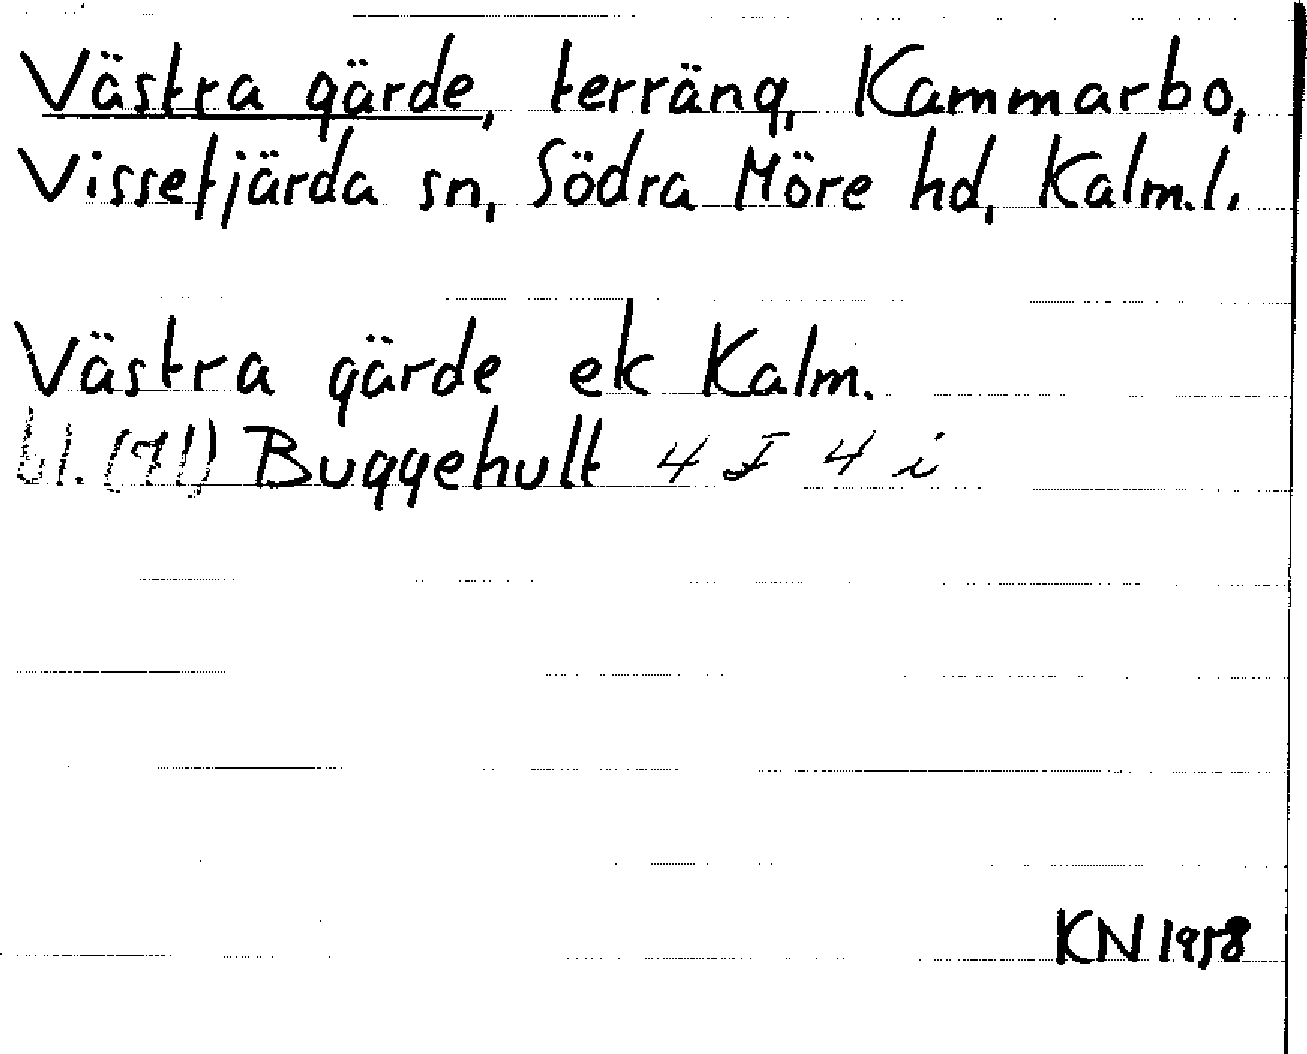 Västra gärde, terräng, Kammarbo,
Vissefjärda sn, Södra Möre hd, Kalm.l.
Västra gärde ek Kalm.
bl. (71) Buggehult 4 F 4 i
KN 1958